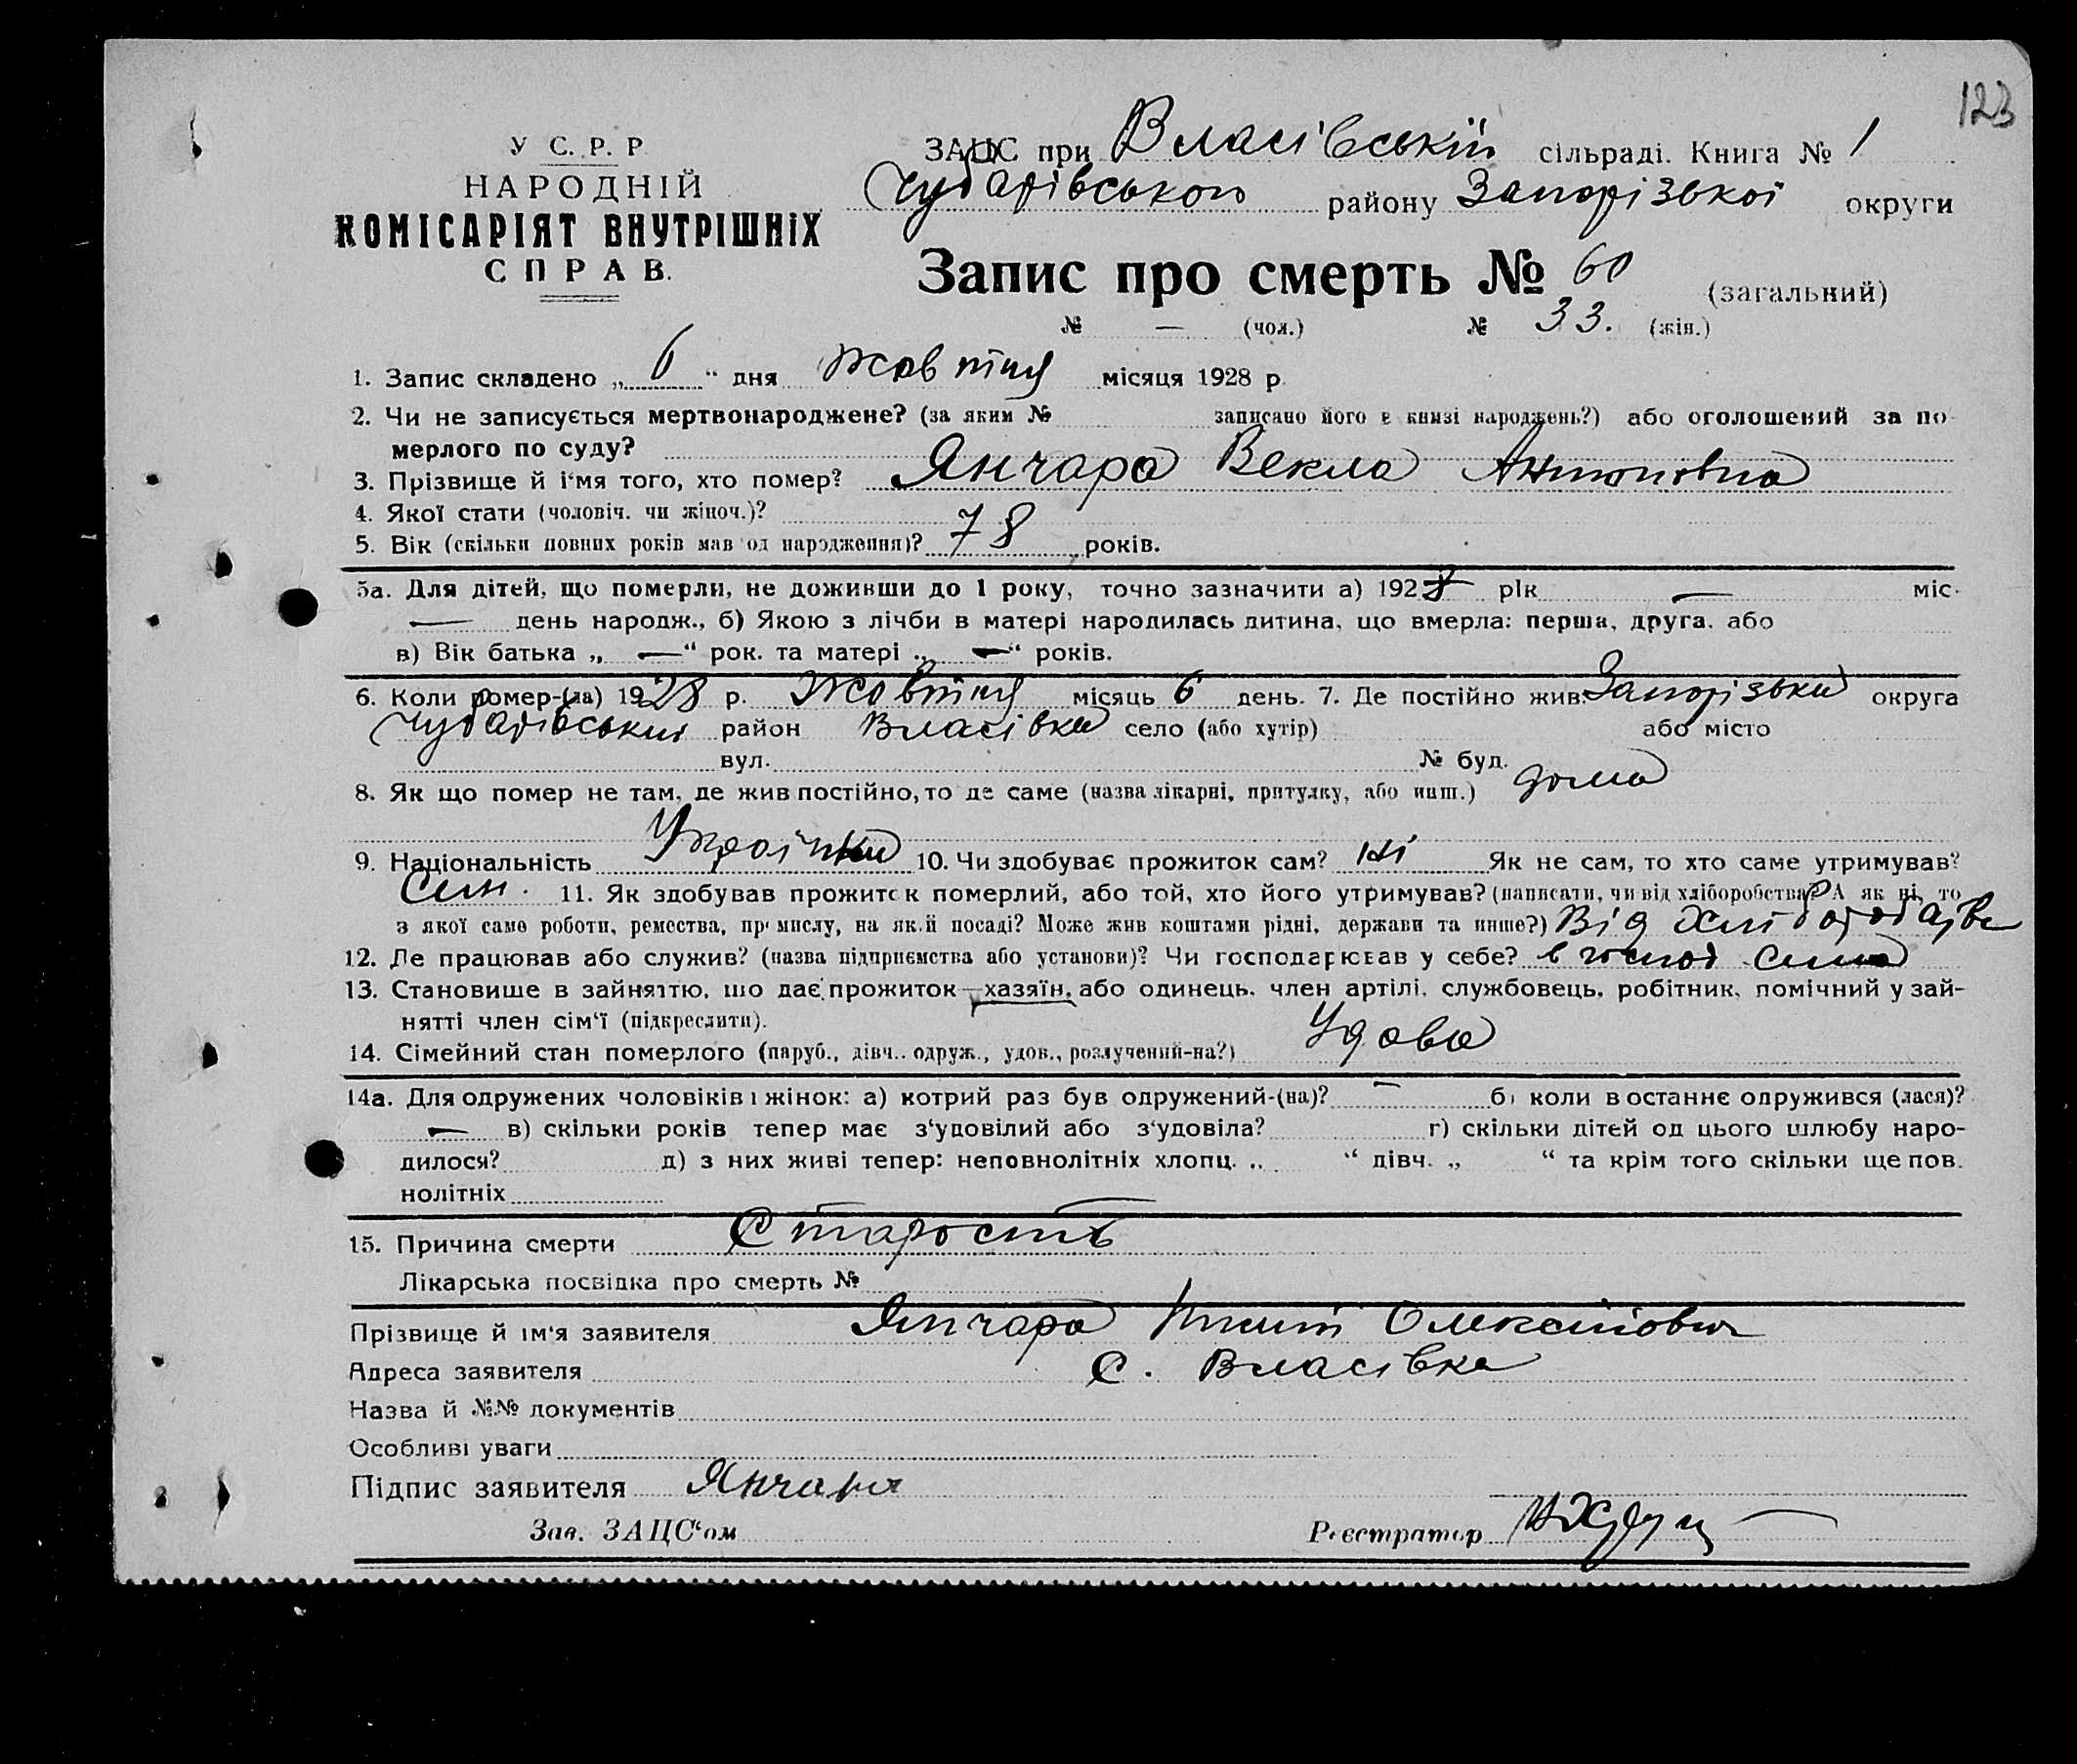 123
У С. Р. Р
НАРОДНІЙ
КОМІСАРІЯТ ВНУТРІШНІХ
СПРАВ.
ЗАЦС при Власівській сільраді. Книга № 1
Чубарівського району Запорізької округи
Запис про смерть № 60 (загальний)
№ — (чол.) № 33. (жін.)
1. Запис складено „ 6 “ дня Жовтня місяця 1928 р.
2. Чи не записується мертвонароджене? (за яким № записано його в книзі народжень?) або оголошений за по
мерлого по суду?
3. Прізвище й і‘мя того, хто помер? Янчара Векла Антоновна
4. Якої стати (чоловіч. чи жіноч.)?
5. Вік (скільки повних років мав од народження)? 78 років.
5а. Для дітей, що померли, не доживши до 1 року, точно зазначити а) 1928 рік — міс.
— день народж., б) Якою з лічби в матері народилась дитина, що вмерла: перша, друга. або
в) Вік батька „ — “ рок. та матері „ — “ років.
6. Коли помер-(ла) 1928 р. Жовтня місяць 6 день. 7. Де постійно жив: Запорізька округа
Чубарівський район Власівка село (або хутір) або місто
вул. № буд.
8. Як що помер не там, де жив постійно, то де саме (назва лікарні, притулку, або инш.) дома
9. Національність Українка 10. Чи здобуває прожиток сам? ні Як не сам, то хто саме утримував?
Син. 11. Як здобував прожиток померлий, або той, хто його утримував? (написати, чи від хліборобства? А як ні, то
з якої саме роботи, ремества, промислу, на якій посаді? Може жив коштами рідні, держави та инше?) Від хліборобства
12. Де працював або служив? (назва підприємства або установи)? Чи господарював у себе? в господ сина
13. Становище в зайняттю, що дає прожиток—хазяїн, або одинець, член артілі, службовець, робітник, помічний у зай-
нятті член сім‘ї (підкреслити).
14. Сімейний стан померлого (паруб., дівч.. одруж., удов., розлучений-на?) Удова
14а. Для одружених чоловіків і жінок: а) котрий раз був одружений-(на)? — б) коли в останнє одружився (лася)?
— в) скільки років тепер має з‘удовілий або з‘удовіла? г) скільки дітей од цього шлюбу наро-
дилося? д) з них живі тепер: неповнолітніх хлопц. „ “ дівч. „ “ та крім того скільки ще пов.
нолітніх
15. Причина смерти Старость
Лікарська посвідка про смерть №
Прізвище й ім‘я заявителя Янчара Олексійович
Адреса заявителя с. Власівка
Назва й №№ документів
Особливі уваги
Підпис заявителя Янчара
Зав. ЗАЦС‘ом Реєстратор